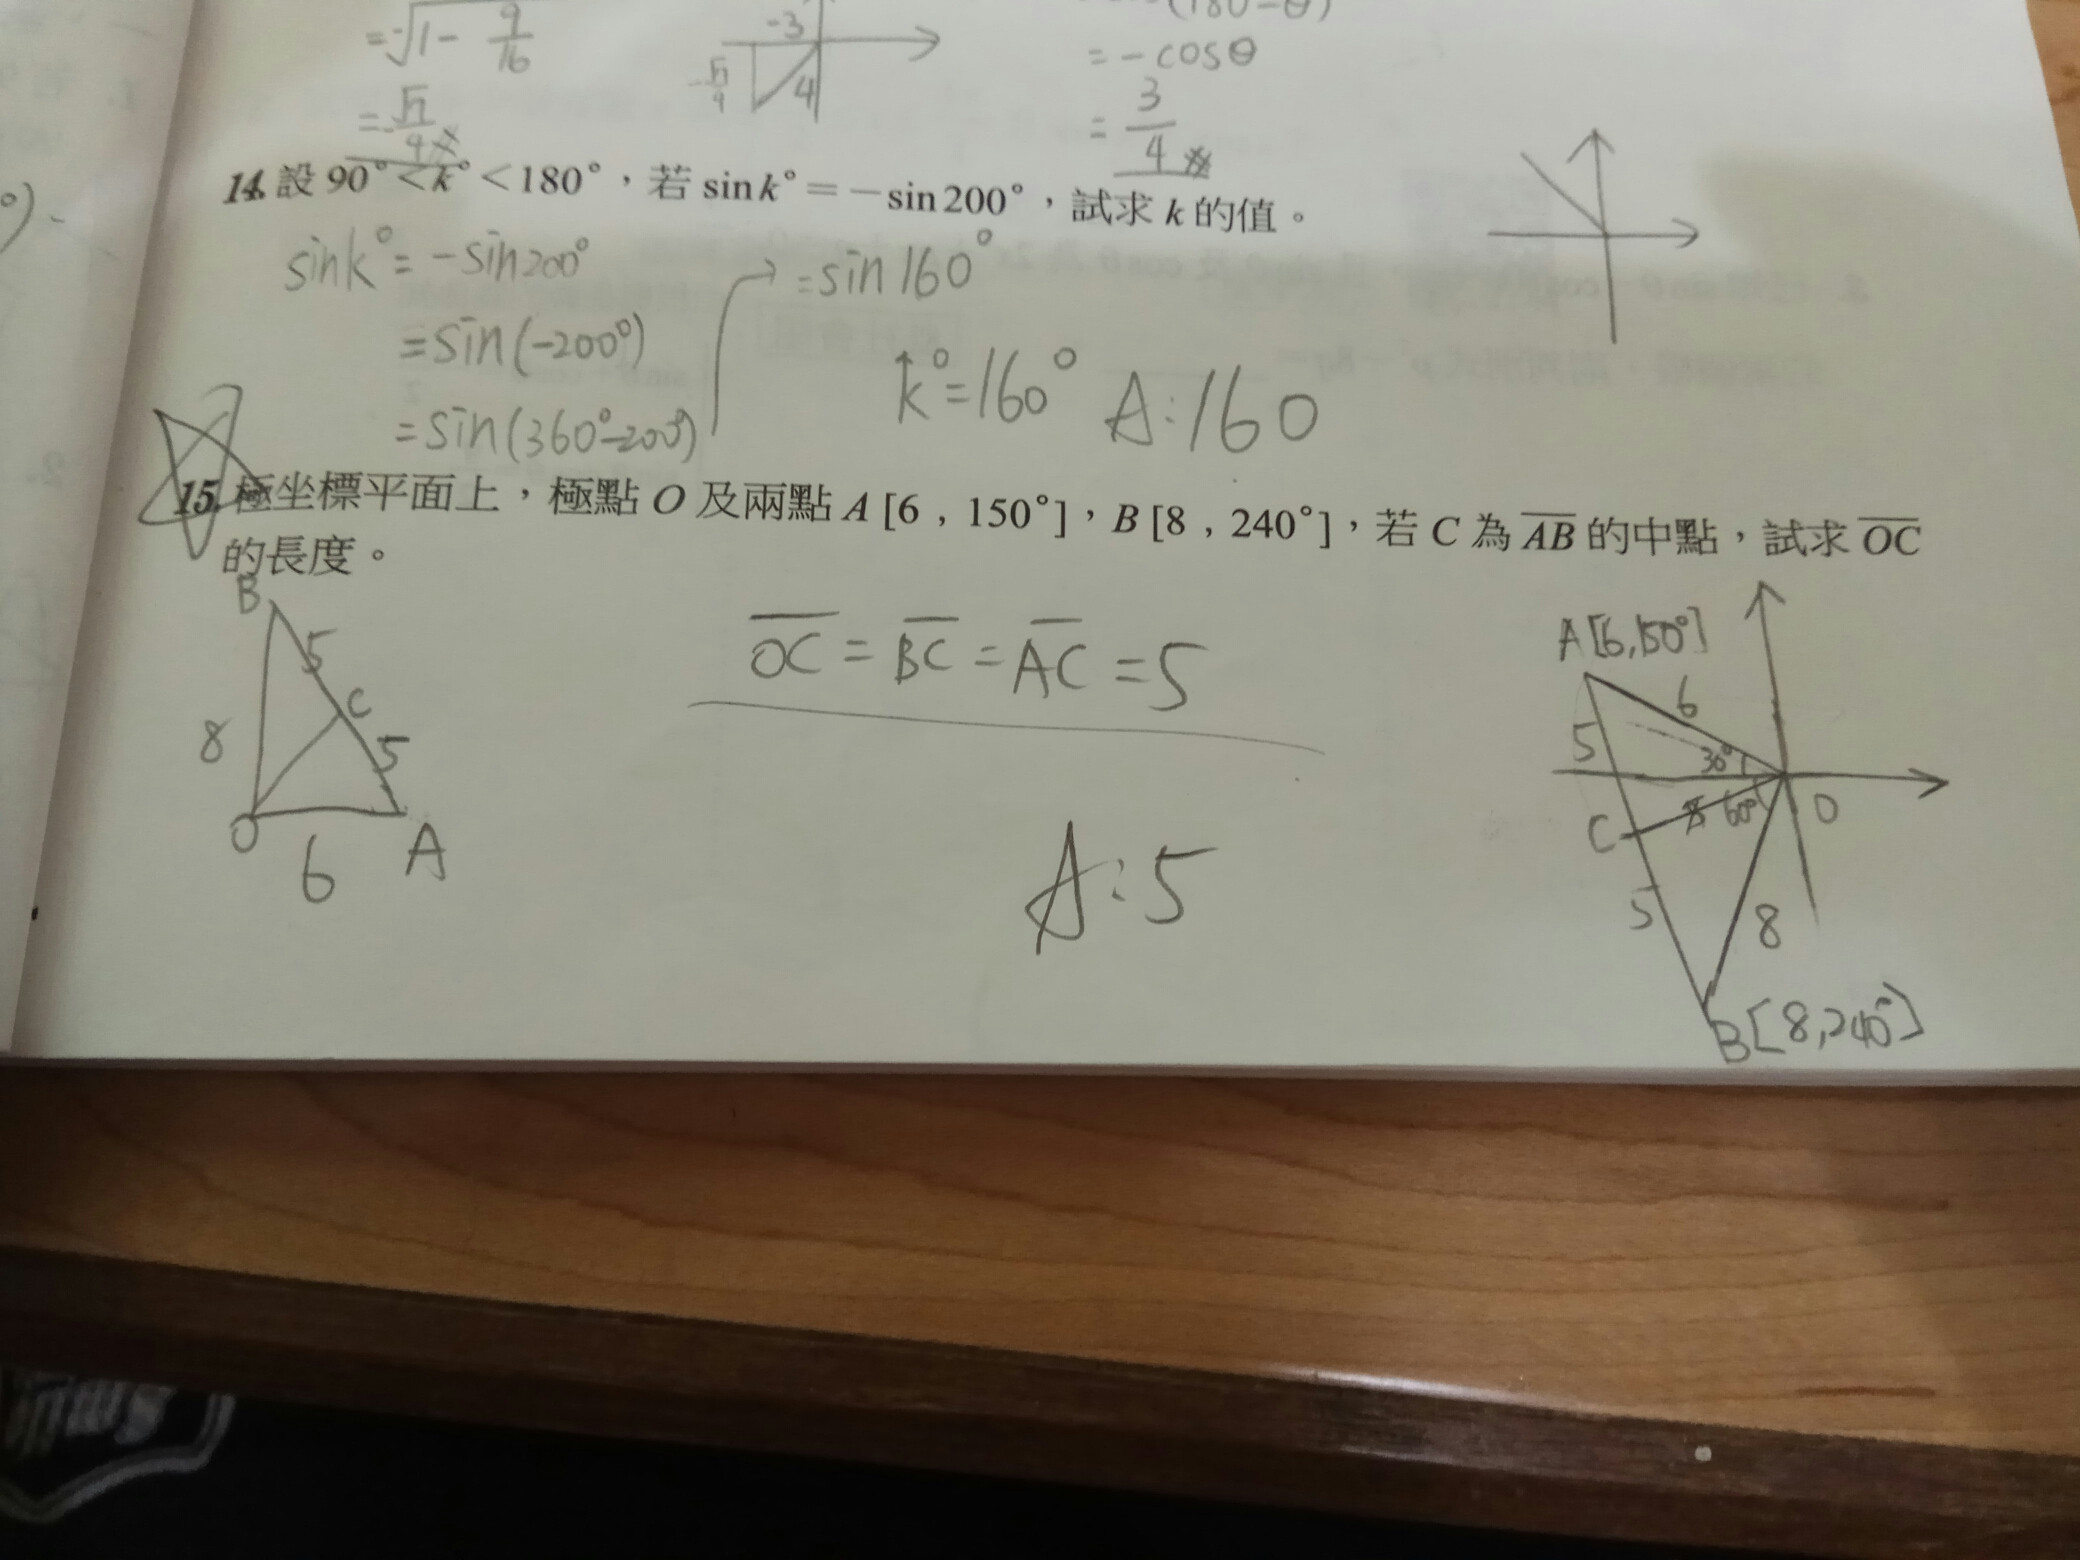 =√1-9/16
-3
4
=-cosθ
=3/4
14. 設 90° < k° < 180°，若 sin k° = －sin 200°，試求 k 的值。
sink°=-sin200°
=sin(-200°)
=sin(360°-200°)
→=sin160°
k°=160° A:160
15. 極坐標平面上，極點 O 及兩點 A [6 , 150°]，B [8 , 240°]，若 C 為 AB 的中點，試求 OC
的長度。
B
5
C
8
5
O
6
A
OC=BC=AC=5
A:5
A[6,150°]
6
5
30°
60°
O
C
5
8
B[8,240°]